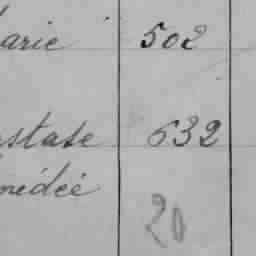 arie 502
stase 632
médée
20